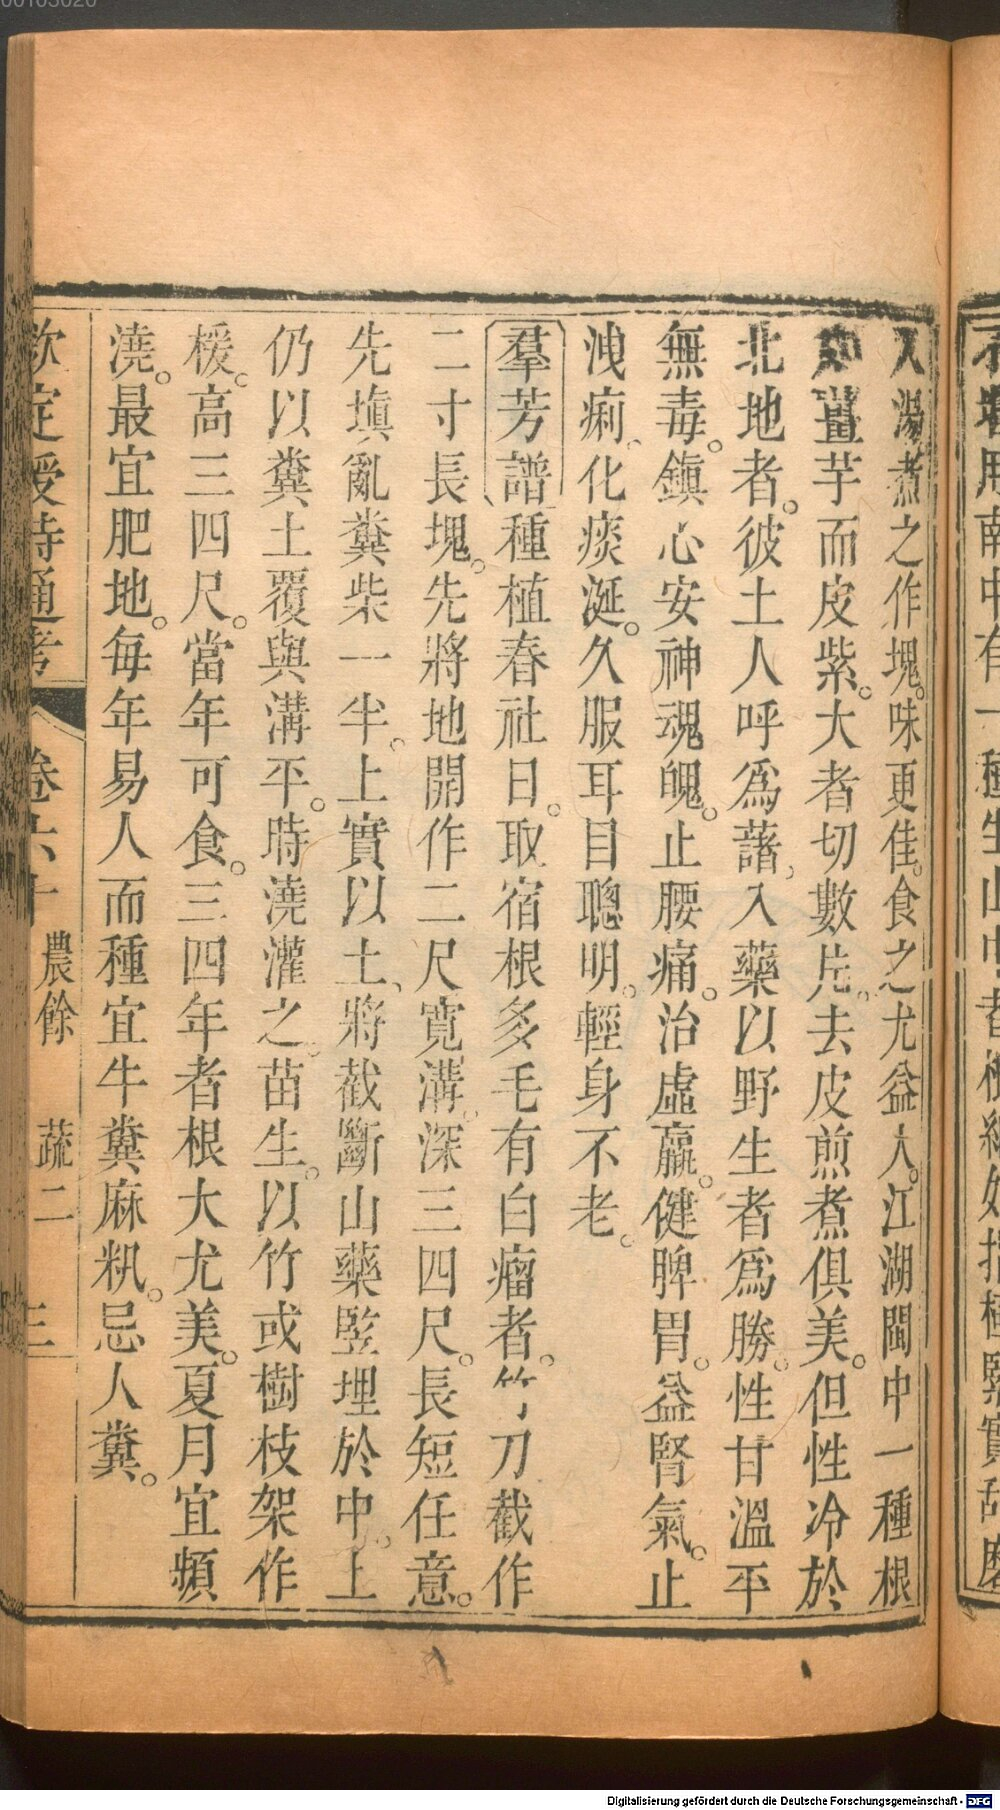 入湯煮之作塊。味更佳。食之尤益人。江湖閩中一種根
如薑芋而皮紫。大者切數片。去皮煎煮俱美。但性冷於
北地者。彼土人呼爲藷、入藥以野生者爲勝。性甘溫平
無毒。鎮心安神魂魄。止腰痛。治虛羸。健脾胃。益腎氣。止
洩痢、化痰涎。久服耳目聰明。輕身不老。
羣芳譜種植春社日。取宿根多毛有白瘤者。竹刀截作
二寸長塊。先將地開作二尺寬溝。深三四尺。長短任意。
先塡亂糞柴一半。上實以土、將截斷山藥竪埋於中。上
仍以糞土覆與溝平。時澆灌之。苗生。以竹或樹枝架作
楥。高三四尺。當年可食。三四年者根大尤美。夏月宜頻
澆。最宜肥地。每年易人而種宜牛糞麻籸。忌人糞。
欽定授時通考 卷六十 農餘 蔬二 三
Digitalisierung gefördert durch die Deutsche Forschungsgemeinschaft - DFG